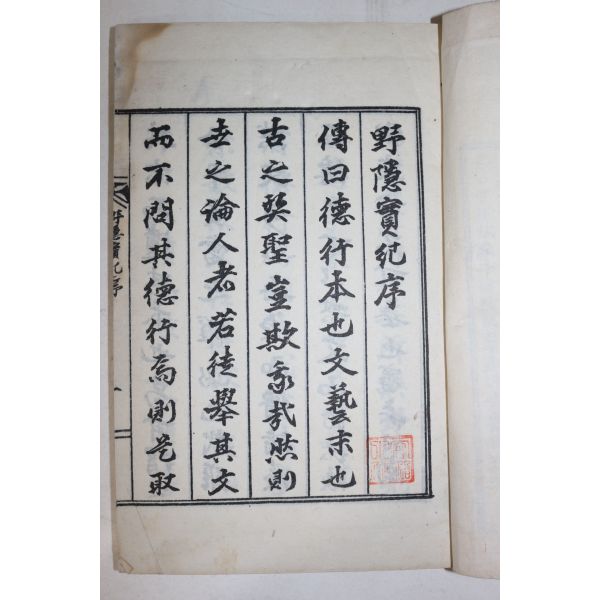 野隱實紀序
傳曰德行本也文藝末也
古之契聖豈欺我哉然則
世之論人者若徒擧其文
而不問其德行焉則是取
野隱實紀序